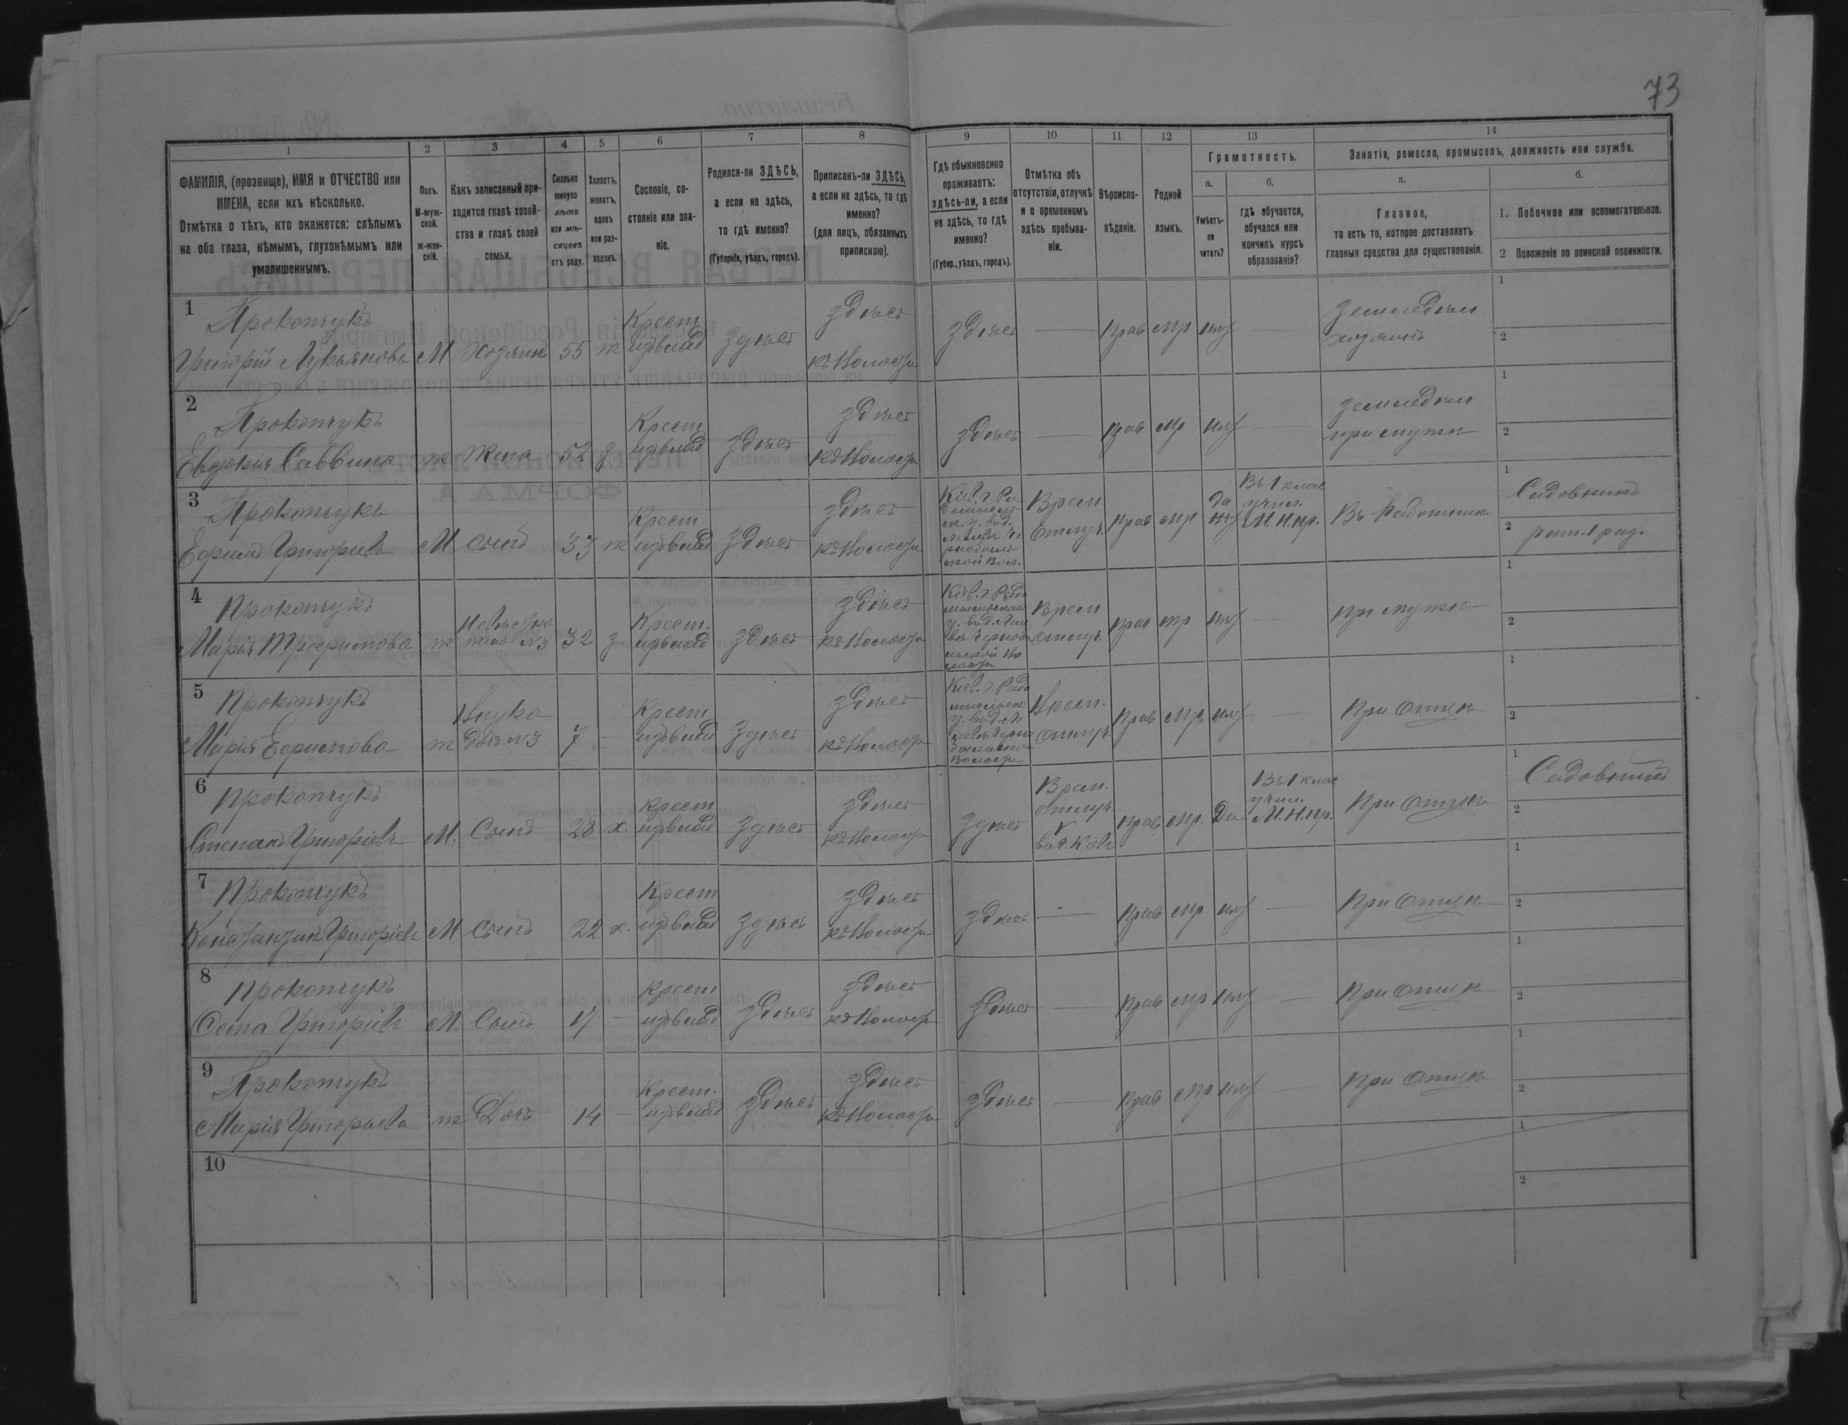 73
1 2 3 4 5 6 7 8 9 10 11 12 13 14
ФАМИЛІЯ, (прозвище), ИМЯ и ОТЧЕСТВО или
ИМЕНА, если ихъ нѣсколько.
Отмѣтка о тѣхъ, кто окажется: слѣпымъ
на оба глаза, нѣмымъ, глухонѣмымъ или
умалишеннымъ.
Полъ.
М-муж-
ской.
Ж-жен-
скій.
Какъ записанный при-
ходится главѣ хозяй-
ства и главѣ своей
семьи.
Сколько
минуло
лѣтъ
или мѣ-
сяцевъ
отъ роду.
Холостъ,
женатъ,
вдовъ
или раз-
веденъ.
Сословіе, со-
стояніе или зва-
ніе.
Родился-ли ЗДѢСЬ,
а если не здѣсь,
то гдѣ именно?
(Губернія, уѣздъ, городъ).
Приписанъ-ли ЗДѢСЬ,
а если не здѣсь, то гдѣ
именно?
(для лицъ, обязанныхъ
припискою).
Гдѣ обыкновенно
проживаетъ:
здѣсь-ли, а если
не здѣсь, то гдѣ
именно?
(Губер., уѣздъ, городъ).
Отмѣтка объ
отсутствіи, отлучкѣ
и о временномъ
здѣсь пребыва-
ніи.
Вѣроиспо-
вѣданіе.
Родной
языкъ.
Грамотность.
а.
Умѣетъ-
ли
читать?
б.
гдѣ обучается,
обучался или
кончилъ курсъ
образованія?
Занятія, ремесло, промыселъ, должность или служба.
а.
Главное,
то есть то, которое доставляетъ
главныя средства для существованія.
б.
1. Побочное или вспомогательное.
2 Положеніе по воинской повинности.
1
Прокопчукъ
Григорій Лукьяновъ М Хозяинъ 55 ж
Крест
здѣсь здѣсь
къ Волости
здѣсь — Прав мр нѣт —
Земледѣл
хозяинъ
1
2
2
Прокопчукъ
Евдокія Саввина ж Жена 52 з
Крест
здѣсь здѣсь
къ Волости
здѣсь — Прав мр нѣт —
Земледѣл
при мужѣ
1
2
3
Прокопчукъ
Ефимъ Григоріевъ М Сынъ 33 ж
Крест
здѣсь здѣсь
къ Волости
Врем
отлуч. Прав мр
Да
Въ 1 клас
учил.
М.Н.пр.
1
Садовникъ
2
4
Прокопчукъ
Марія Трофимова ж
Невѣстка
жена №3 32 з
Крест.
здѣсь здѣсь
къ Волости
Врем
отлуч. Прав мр нѣт —
при мужѣ
1
2
5
Прокопчукъ
Марія Ефимова ж
Внука
дочь №3 7 —
Крест
здѣсь здѣсь
къ Волости
Врем.
отлуч. Прав мр нѣт —
При отцѣ
1
2
6
Прокопчукъ
Степанъ Григоріевъ М. Сынъ 28 х.
Крест
здѣсь здѣсь
къ Волости
здѣсь
Врем.
отлуч.
Прав мр. Да
Въ 1 клас
учил.
М.Н.пр.
При отцѣ
1
Садовникъ
2
7
Прокопчукъ
Константинъ Григоріевъ М Сынъ 22 х.
Крест
здѣсь здѣсь
къ Волости
здѣсь — Прав мр нѣт —
При отцѣ
1
2
8
Прокопчукъ
Осипъ Григоріевъ М. Сынъ 17 —
Крест
здѣсь здѣсь
къ Волости
здѣсь — Прав мр нѣт —
При отцѣ
1
2
9
Прокопчукъ
Марія Григорьева ж Дочь 14 —
Крест.
здѣсь здѣсь
къ Волости
здѣсь — Прав мр нѣт —
При отцѣ
1
2
10
1
2